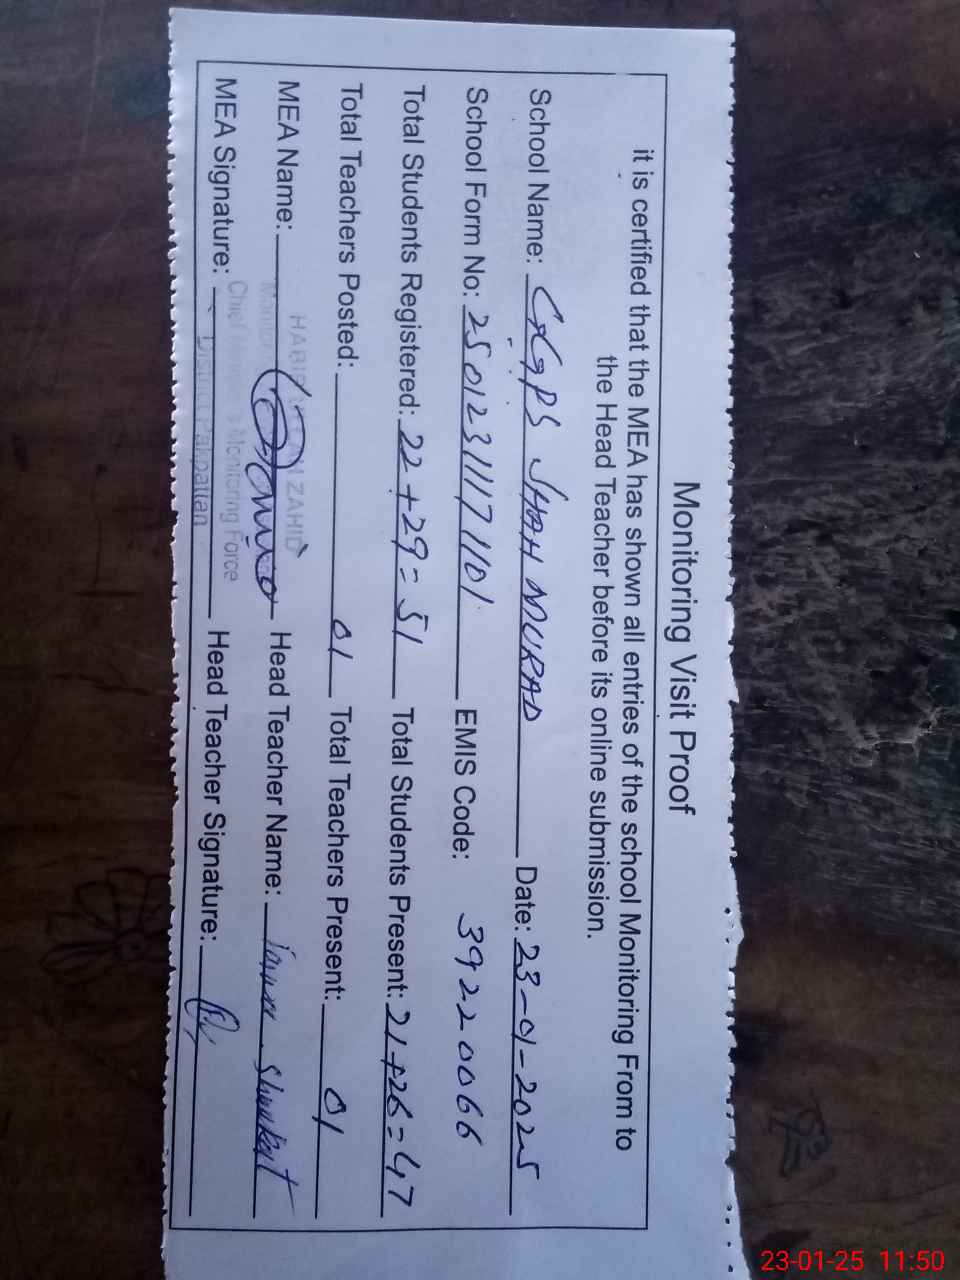 Monitoring Visit Proof
it is certified that the MEA has shown all entries of the school Monitoring From to
the Head Teacher before its online submission.
School Name: GGPS SHAH MURAD Date: 23-01-2025
School Form No: 25012311171101 EMIS Code: 39220066
Total Students Registered: 22+29=51 Total Students Present: 21+26=47
Total Teachers Posted: 01 Total Teachers Present: 01
MEA Name: ZAHID Head Teacher Name: Shoukat
MEA Signature: Monitoring Force Head Teacher Signature:
District Pakpattan
23-01-25 11:50